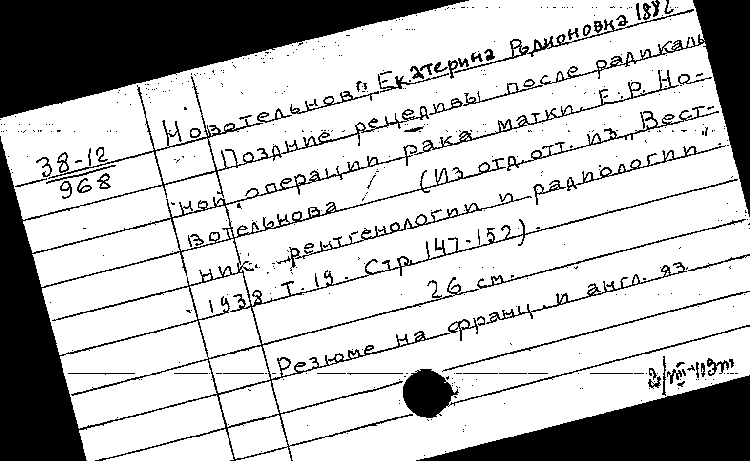 Новотельнова, Екатерина Родионовна 1882
38-12
968
Поздние рецедивы после радикаль
ной операции рака матки. Е.Р. Но-
вотельнова (Из отд. отт. из „Вест-
ник рентгенологии и радиологии".
1938 Т. 19. Стр. 147-152).
26 см.
Резюме на франц. и англ. яз